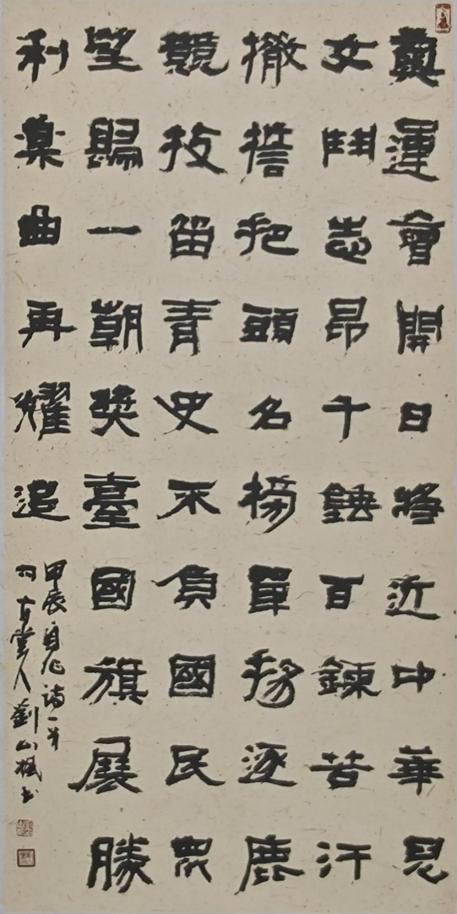 奧運會開日將近中華兒
女鬥志昂千錘百鍊苦汗
撒誓把頭名榜單逐鹿
競技留青史不負國民眾
望賜一朝獎臺國旗展勝
利樂曲再耀追
甲辰自作詩一首
堂人劉山楓書